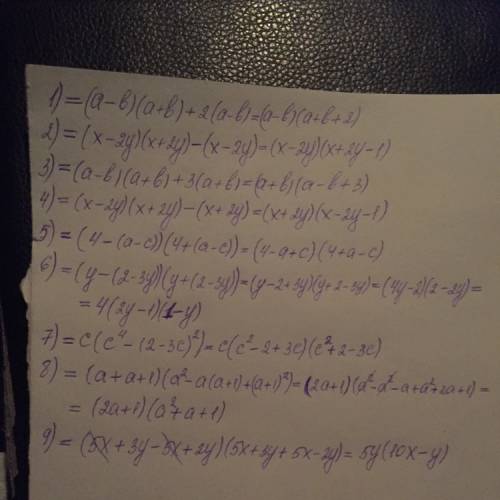 1) = (a-b)(a+b)+2(a-b)=(a-b)(a+b+2)
2) = (x-2y)(x+2y)-(x-2y)=(x-2y)(x+2y-1)
3) = (a-b)(a+b)+3(a+b)=(a+b)(a-b+3)
4) = (x-2y)(x+2y)-(x+2y)=(x+2y)(x-2y-1)
5) = (4-(a-c))(4+(a-c))=(4-a+c)(4+a-c)
6) = (y-(2-3y))(y+(2-3y))=(y-2+3y)(y+2-3y)=(4y-2)(2-2y)=
= 4(2y-1)(1-y)
7) = c(c⁴-(2-3c)²)=c(c²-2+3c)(c²+2-3c)
8) = (a+a+1)(a²-a(a+1)+(a+1)²)=(2a+1)(a²-a²-a+a²+2a+1)=
= (2a+1)(a²+a+1)
9) = (5x+3y-5x+2y)(5x+3y+5x-2y)=5y(10x-y)